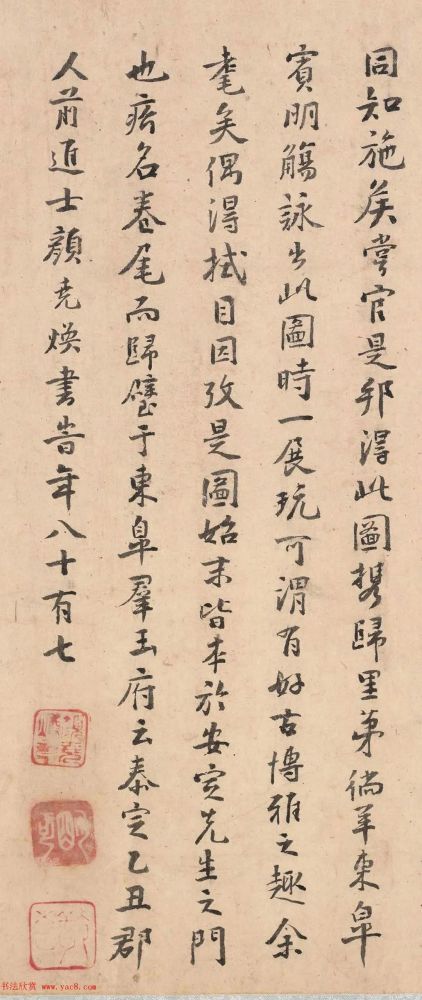 同知施矦嘗官是邦得此圖携歸里第徜羊東臯
賓朋觴詠出此圖時一展玩可謂有好古博雅之趣余
耄矣偶得拭目因攷是圖始末皆本於安定先生之門
也疥名卷尾而歸璧于東臯羣玉府云泰定乙丑郡
人前進士顏堯煥書旹年八十有七
书法欣赏 www.yac8.com